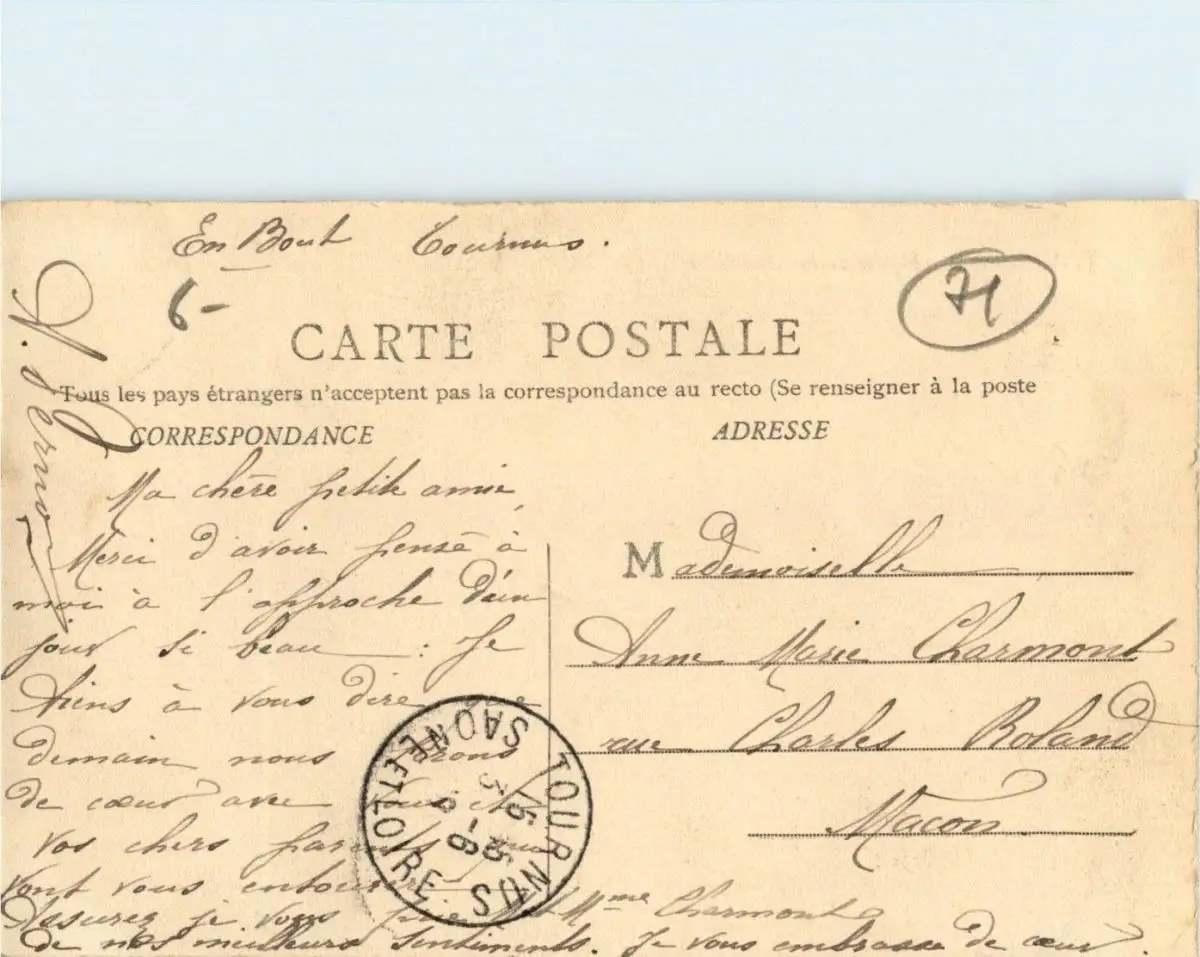 En Bout Tournus.
6-
71
CARTE POSTALE
Tous les pays étrangers n'acceptent pas la correspondance au recto (Se renseigner à la poste
CORRESPONDANCE
Ma chère petite amie,
Merci d'avoir pensé à
moi à l'approche d'un
jour si beau : Je
tiens à vous dire
demain nous serons
de cœur avec
vos chers parents qui
vont vous entourer.
Assurez je vous prie M et Mme Charmont
de nos meilleurs sentiments. Je vous embrasse de cœur.
TOURNUS
SAONE ET LOIRE
ADRESSE
Mademoiselle
Anne Marie Charmont
rue Charles Roland
Macon